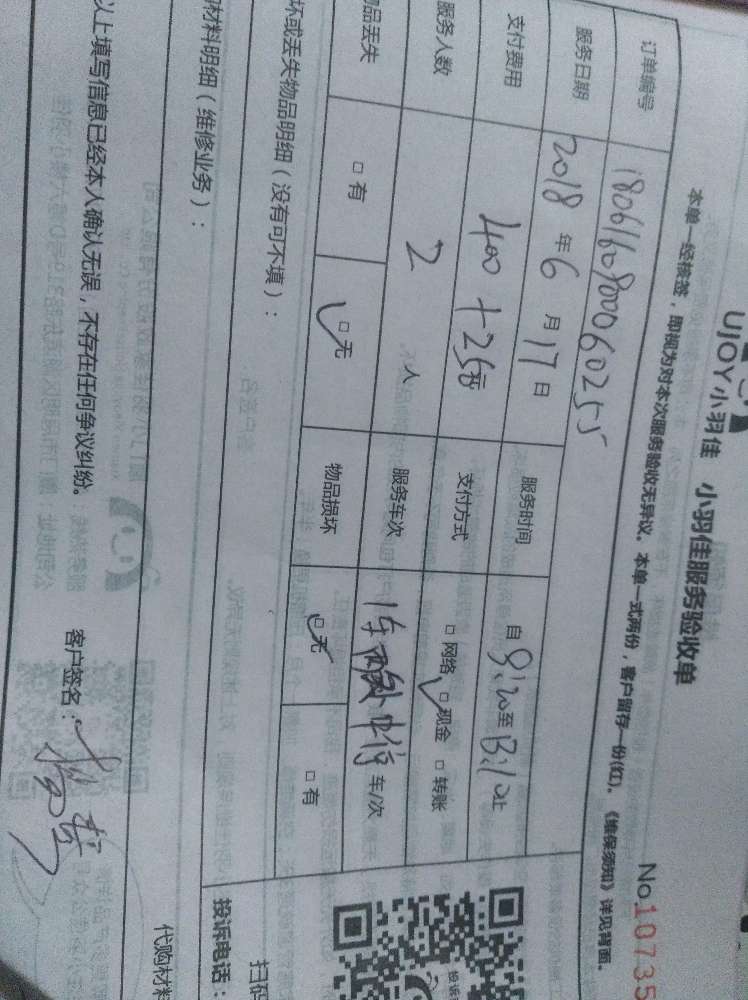 UJOY小羽佳 小羽佳服务验收单
本单一经核签，即视为对本次服务验收无异议。本单一式两份，客户留存一份(红)。《维保须知》详见背面。
No.10735
订单编号 1806160800060255
服务日期 2018年6月17日 服务时间 自8:20至13:10止
支付费用 400+25元 支付方式 □网络 □现金 □转账
服务人数 2人 服务车次 1车 中停 车/次
品丢失 □有 □无 物品损坏 □无 □有
坏或丢失物品明细（没有可不填）：
材料明细（维修业务）：
代购材料
以上填写信息已经本人确认无误，不存在任何争议纠纷。 客户签名：
投诉电话：
扫码